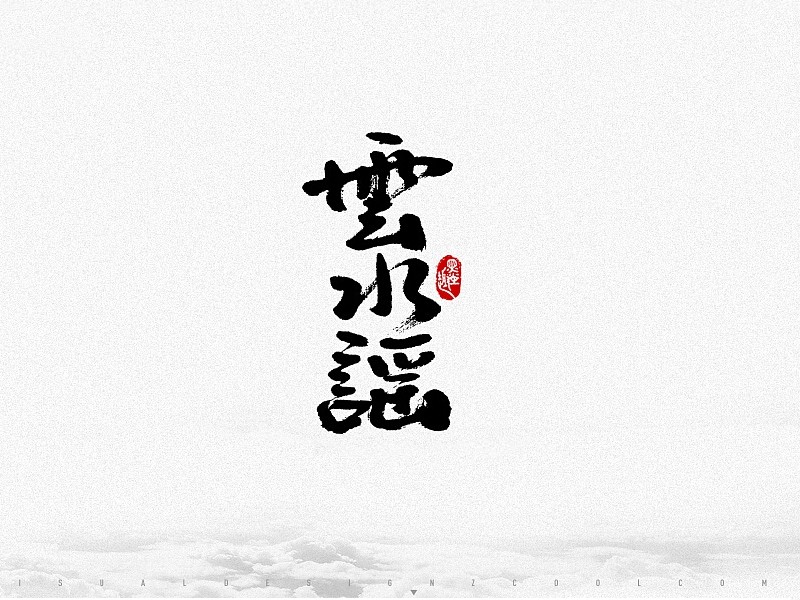 雲水謠
ISUALDESIGNZCOOLCOM